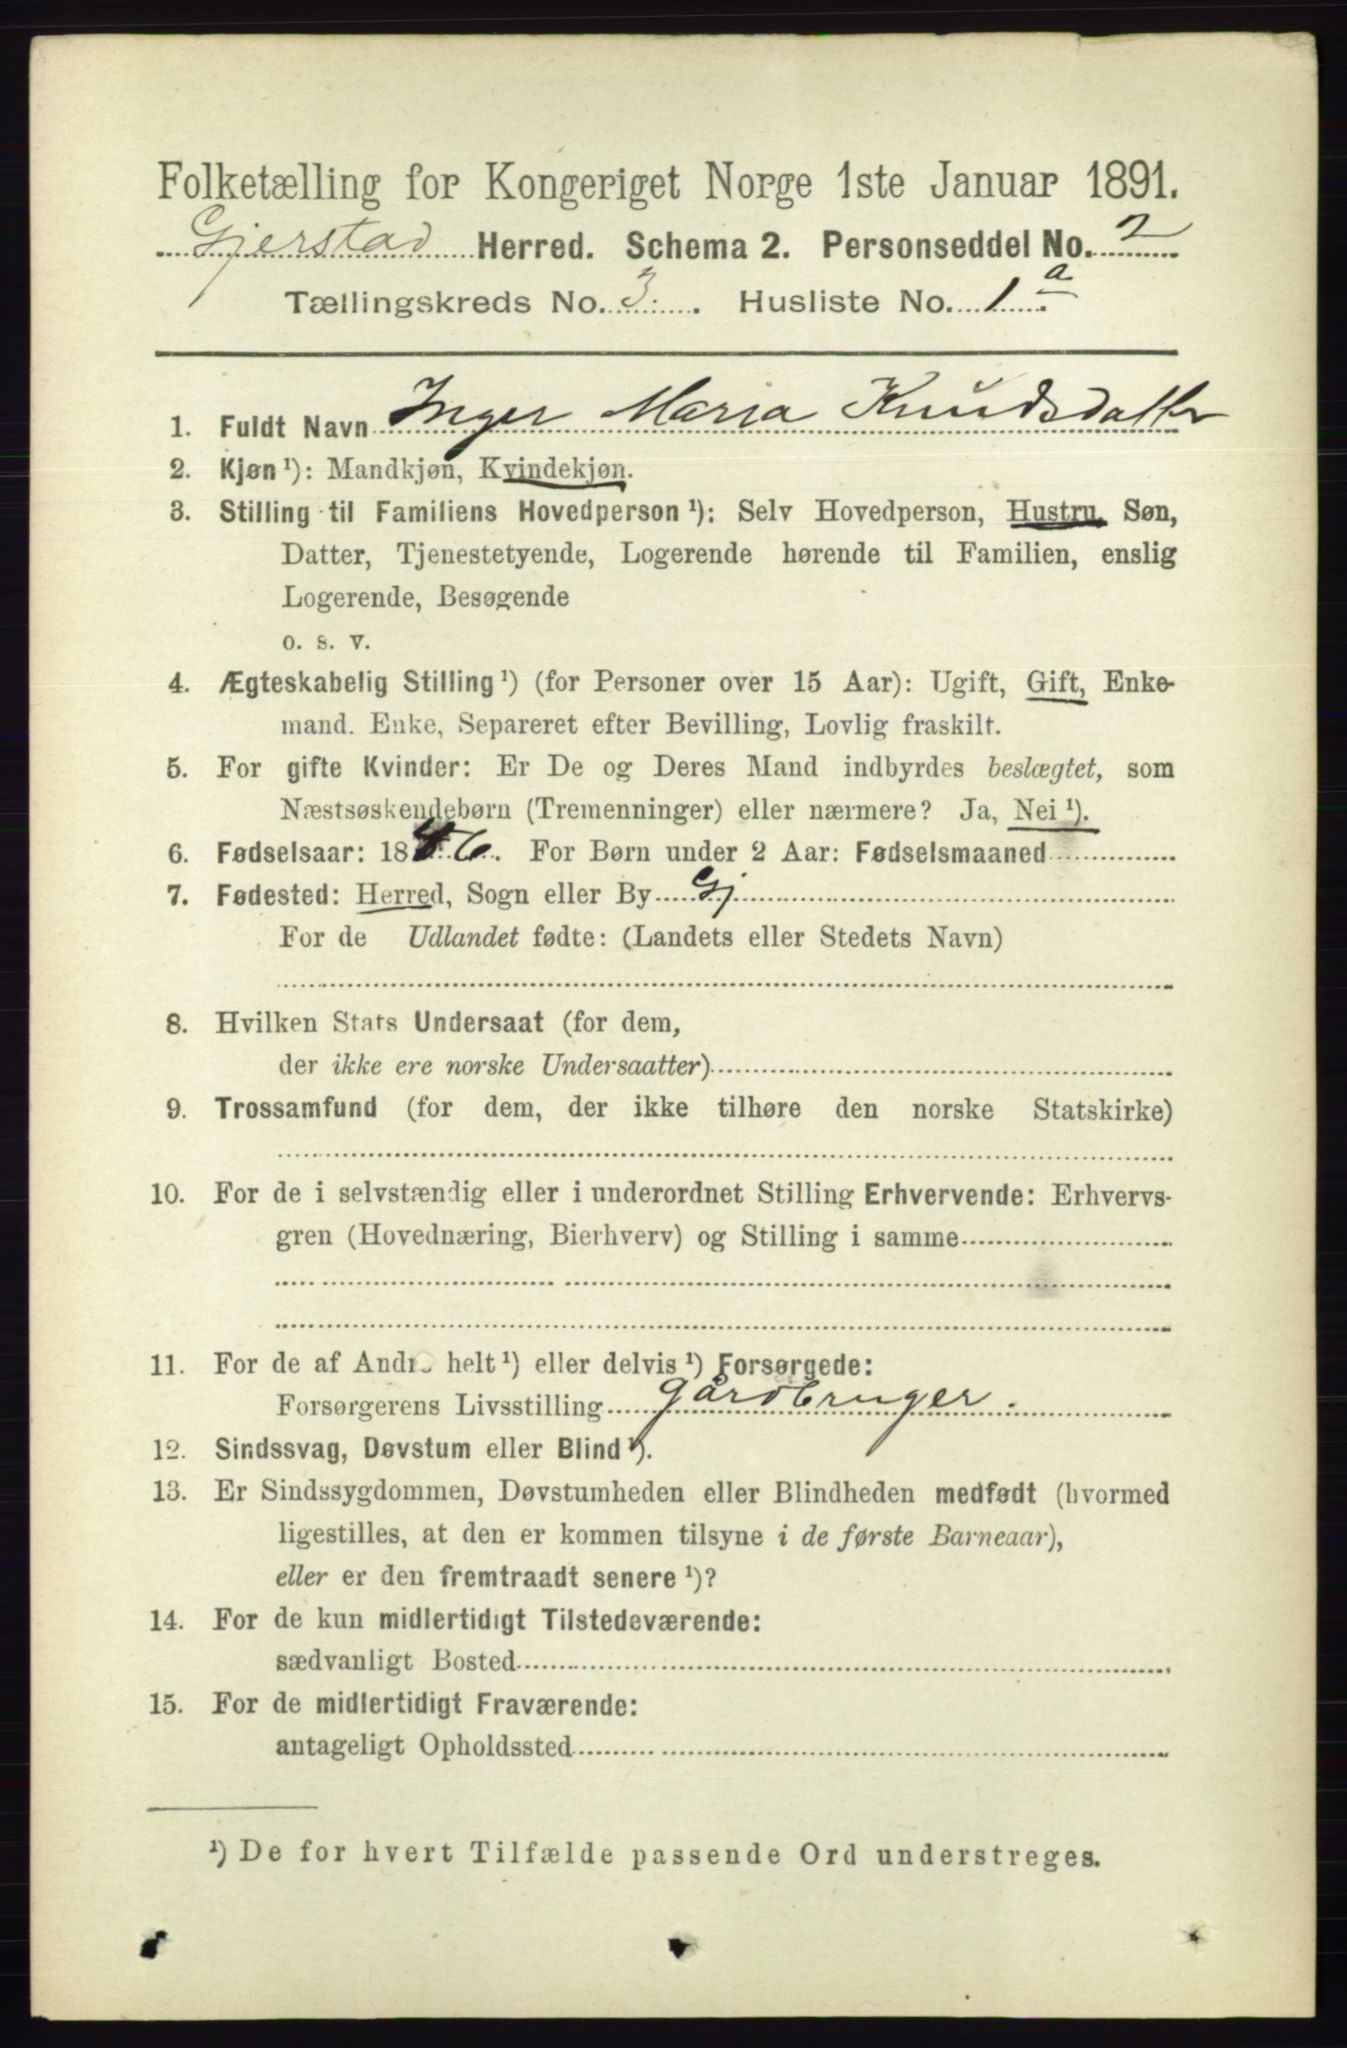 Folketælling for Kongeriget Norge 1ste Januar 1891.
Gjerstad Herred. Schema 2. Personseddel No. 2
Tællingskreds No. 3. Husliste No. 1a
1. Fuldt Navn Inger Maria Knudsdatter
2. Kjøn ¹): Mandkjøn, Kvindekjøn.
3. Stilling til Familiens Hovedperson ¹): Selv Hovedperson, Hustru, Søn,
Datter, Tjenestetyende, Logerende hørende til Familien, enslig
Logerende, Besøgende
o. s. v.
4. Ægteskabelig Stilling ¹) (for Personer over 15 Aar): Ugift, Gift, Enke-
mand. Enke, Separeret efter Bevilling, Lovlig fraskilt.
5. For gifte Kvinder: Er De og Deres Mand indbyrdes beslægtet, som
Næstsøskendebørn (Tremenninger) eller nærmere? Ja, Nei ¹).
6. Fødselsaar: 1846. For Børn under 2 Aar: Fødselsmaaned
7. Fødested: Herred, Sogn eller By Gj
For de Udlandet fødte: (Landets eller Stedets Navn)
8. Hvilken Stats Undersaat (for dem,
der ikke ere norske Undersaatter)
9. Trossamfund (for dem, der ikke tilhøre den norske Statskirke)
10. For de i selvstændig eller i underordnet Stilling Erhvervende: Erhvervs-
gren (Hovednæring, Bierhverv) og Stilling i samme
11. For de af Andre helt ¹) eller delvis ¹) Forsørgede:
Forsørgerens Livsstilling gårdbruger.
12. Sindssvag, Døvstum eller Blind ¹).
13. Er Sindssygdommen, Døvstumheden eller Blindheden medfødt (hvormed
ligestilles, at den er kommen tilsyne i de første Barneaar),
eller er den fremtraadt senere ¹)?
14. For de kun midlertidigt Tilstedeværende:
sædvanligt Bosted
15. For de midlertidigt Fraværende:
antageligt Opholdssted
¹) De for hvert Tilfælde passende Ord understreges.